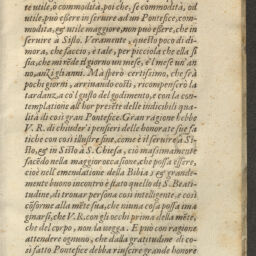 te utile, ò commodità. poi che, se commodità, od
utile, può essere in seruire ad un Pontefice, com-
modità, & utile maggiore, non può essere, che in
seruire a Sisto. Veramente, questo poco di di-
mora, che faccio, è tale, per picciola che ella si
sia, che mi rẽde il giorno un mese, e'l mese un' an
no, anzi gli anni. Ma spero certissimo, che frà
pochi giorni, arriuando costì, ricompensarò la
tardanza, co'l gusto del godimento, e con la con-
templatione all'hor presẽte delle indicibili qua-
lità di così gran Pontefice. Gran ragione hebbe
V. R. di chiuder i pensieri delle honorate sue fa
tiche con così illustre fine, come è il seruire a Si-
sto, & in Sisto à S. Chiesa, ciò massimamente
facẽdo nella maggior occasione, che possa essere,
cioè nell'emendatione della Bibia; & grande-
mente buono incontro è stato quello di S. Beati-
tudine, di trouar persona così intelligente, e così
cõforme alla mẽte sua, che niuna cosa possa ima
ginarsi, che V. R. con gli occhi prima della mẽte,
che del corpo, non la uegga. E può con ragione
attendere ognuno, che dalla gratitudine di co-
sì fatto Pontefice debba riuscire grande honore